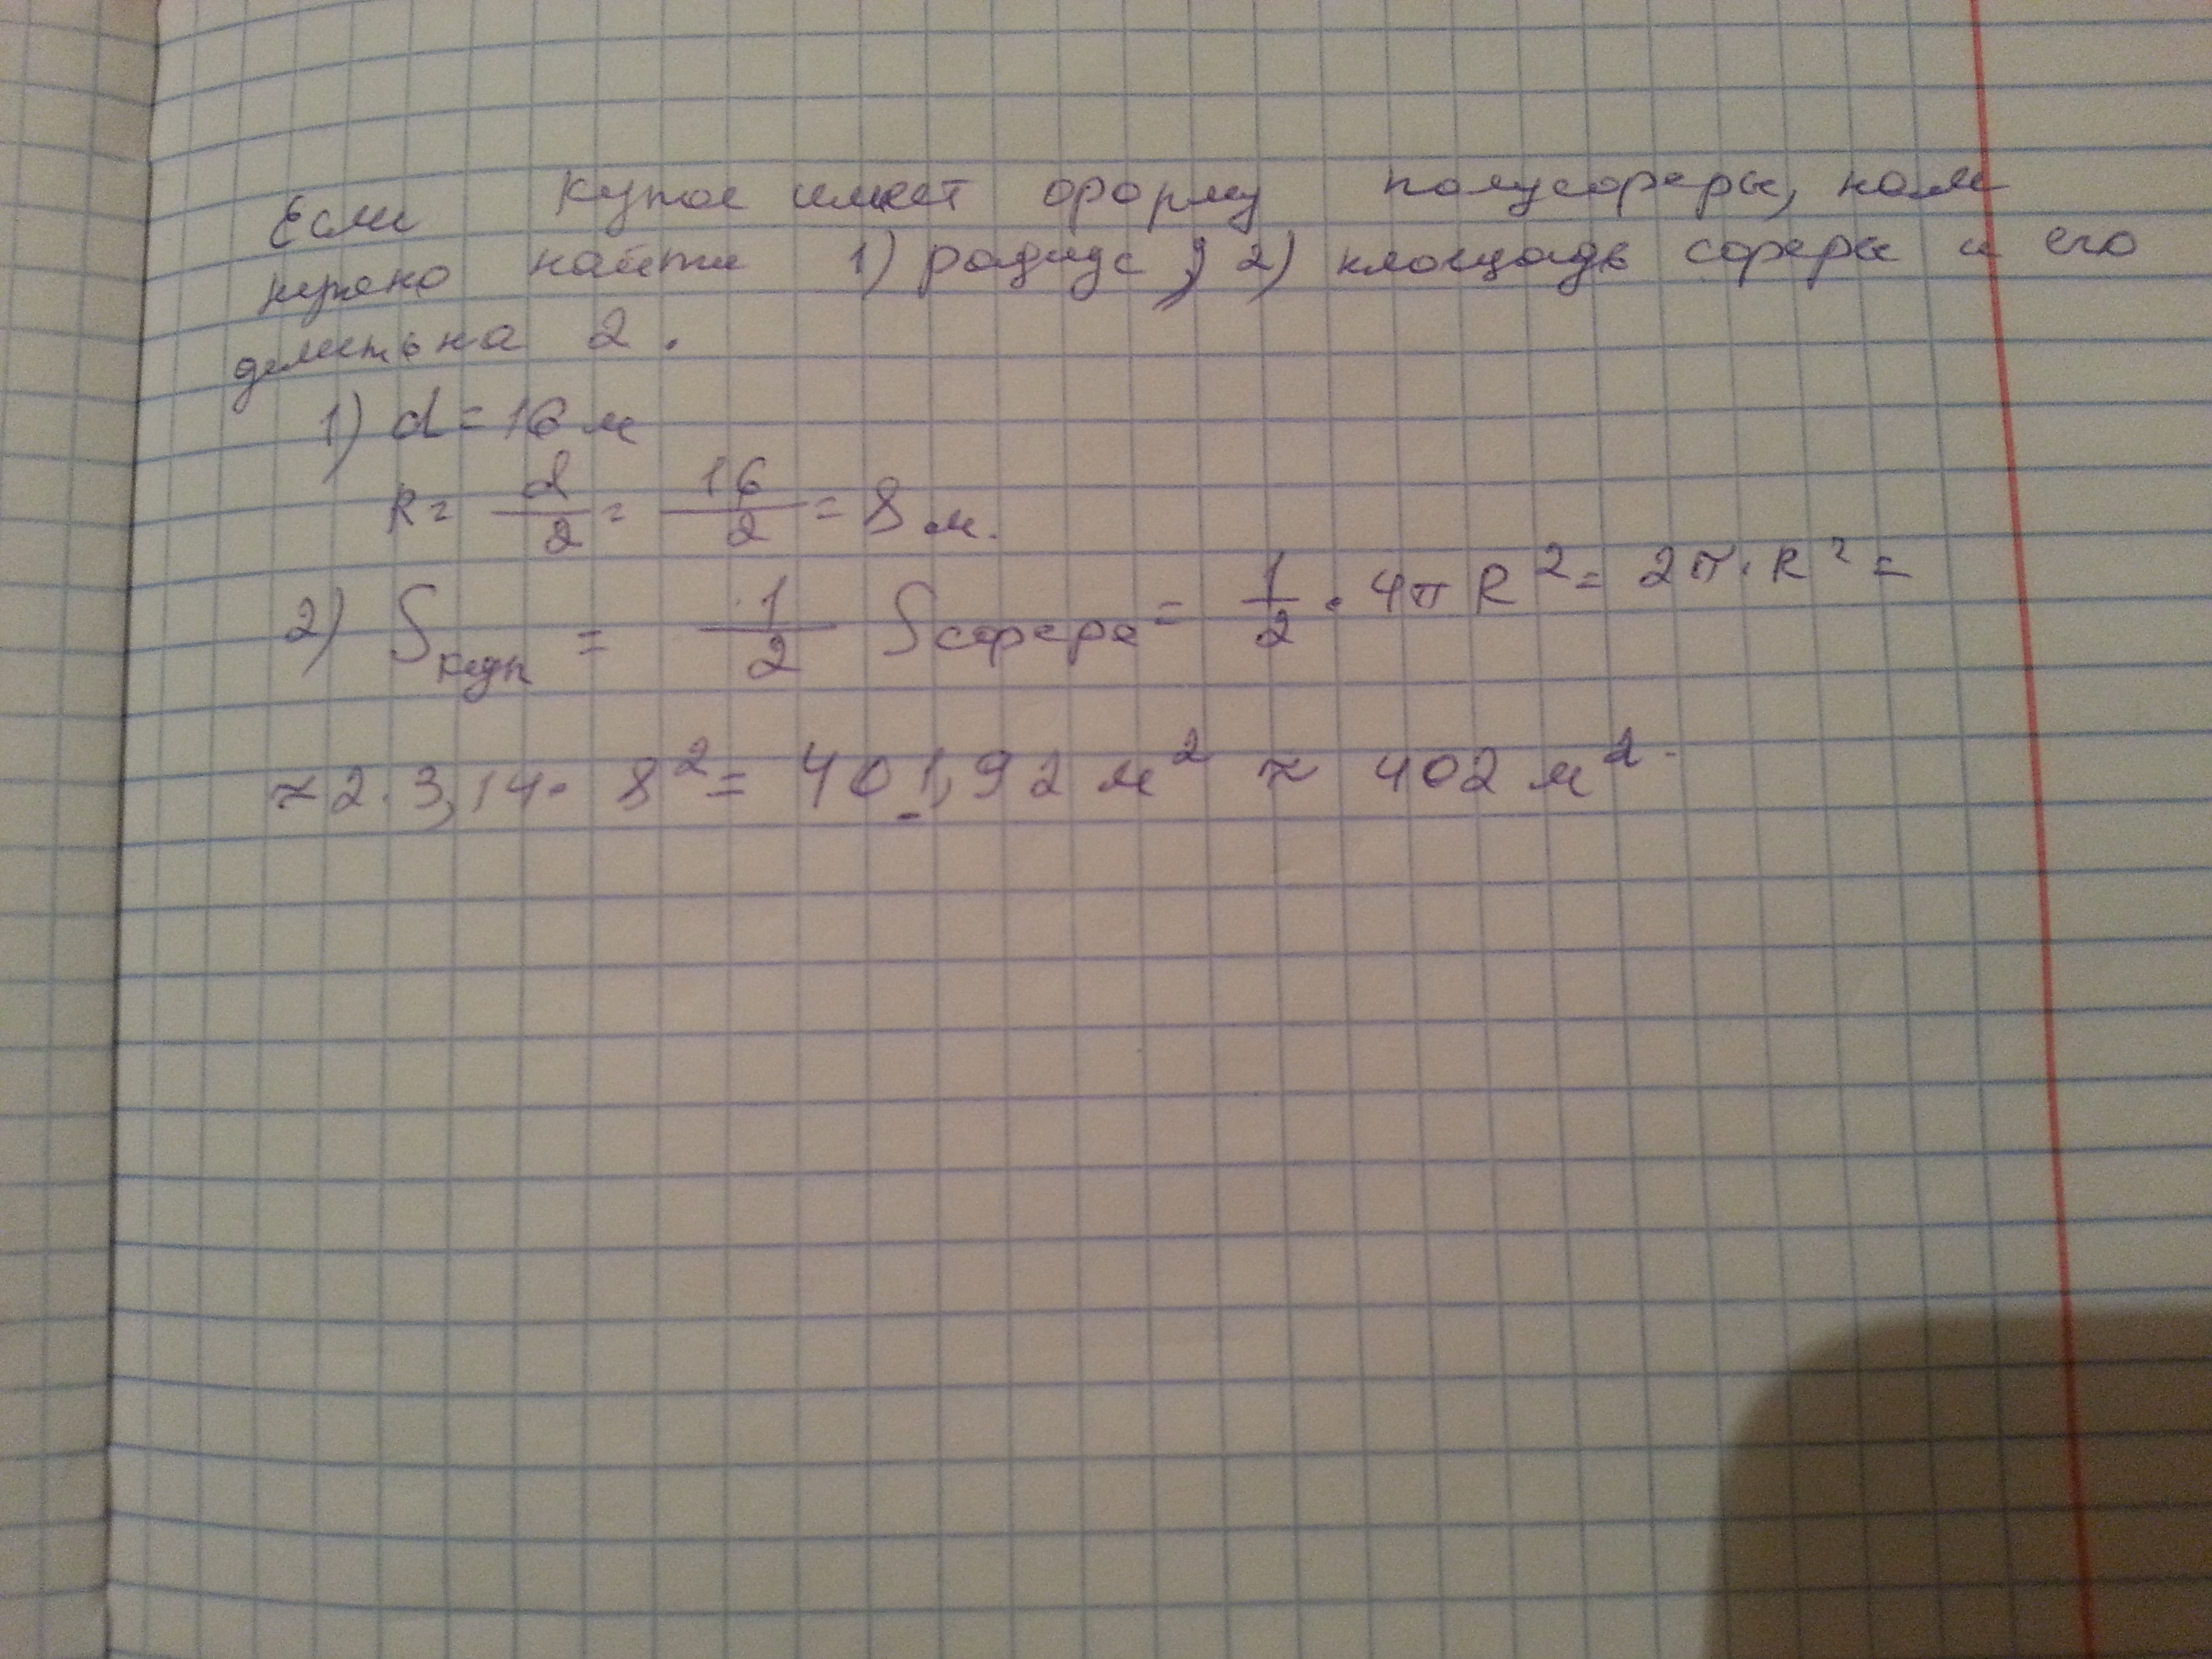 Если купол имеет форму полусферы, нам
нужно найти 1) радиус ; 2) площадь сферы и его
делить на 2.
1) d = 16 м
R = d/2 = 16/2 = 8 м.
2) Sкуп = 1/2 Sсфера = 1/2 · 4πR² = 2π · R² =
≈ 2 · 3,14 · 8² = 401,92 м² ≈ 402 м².